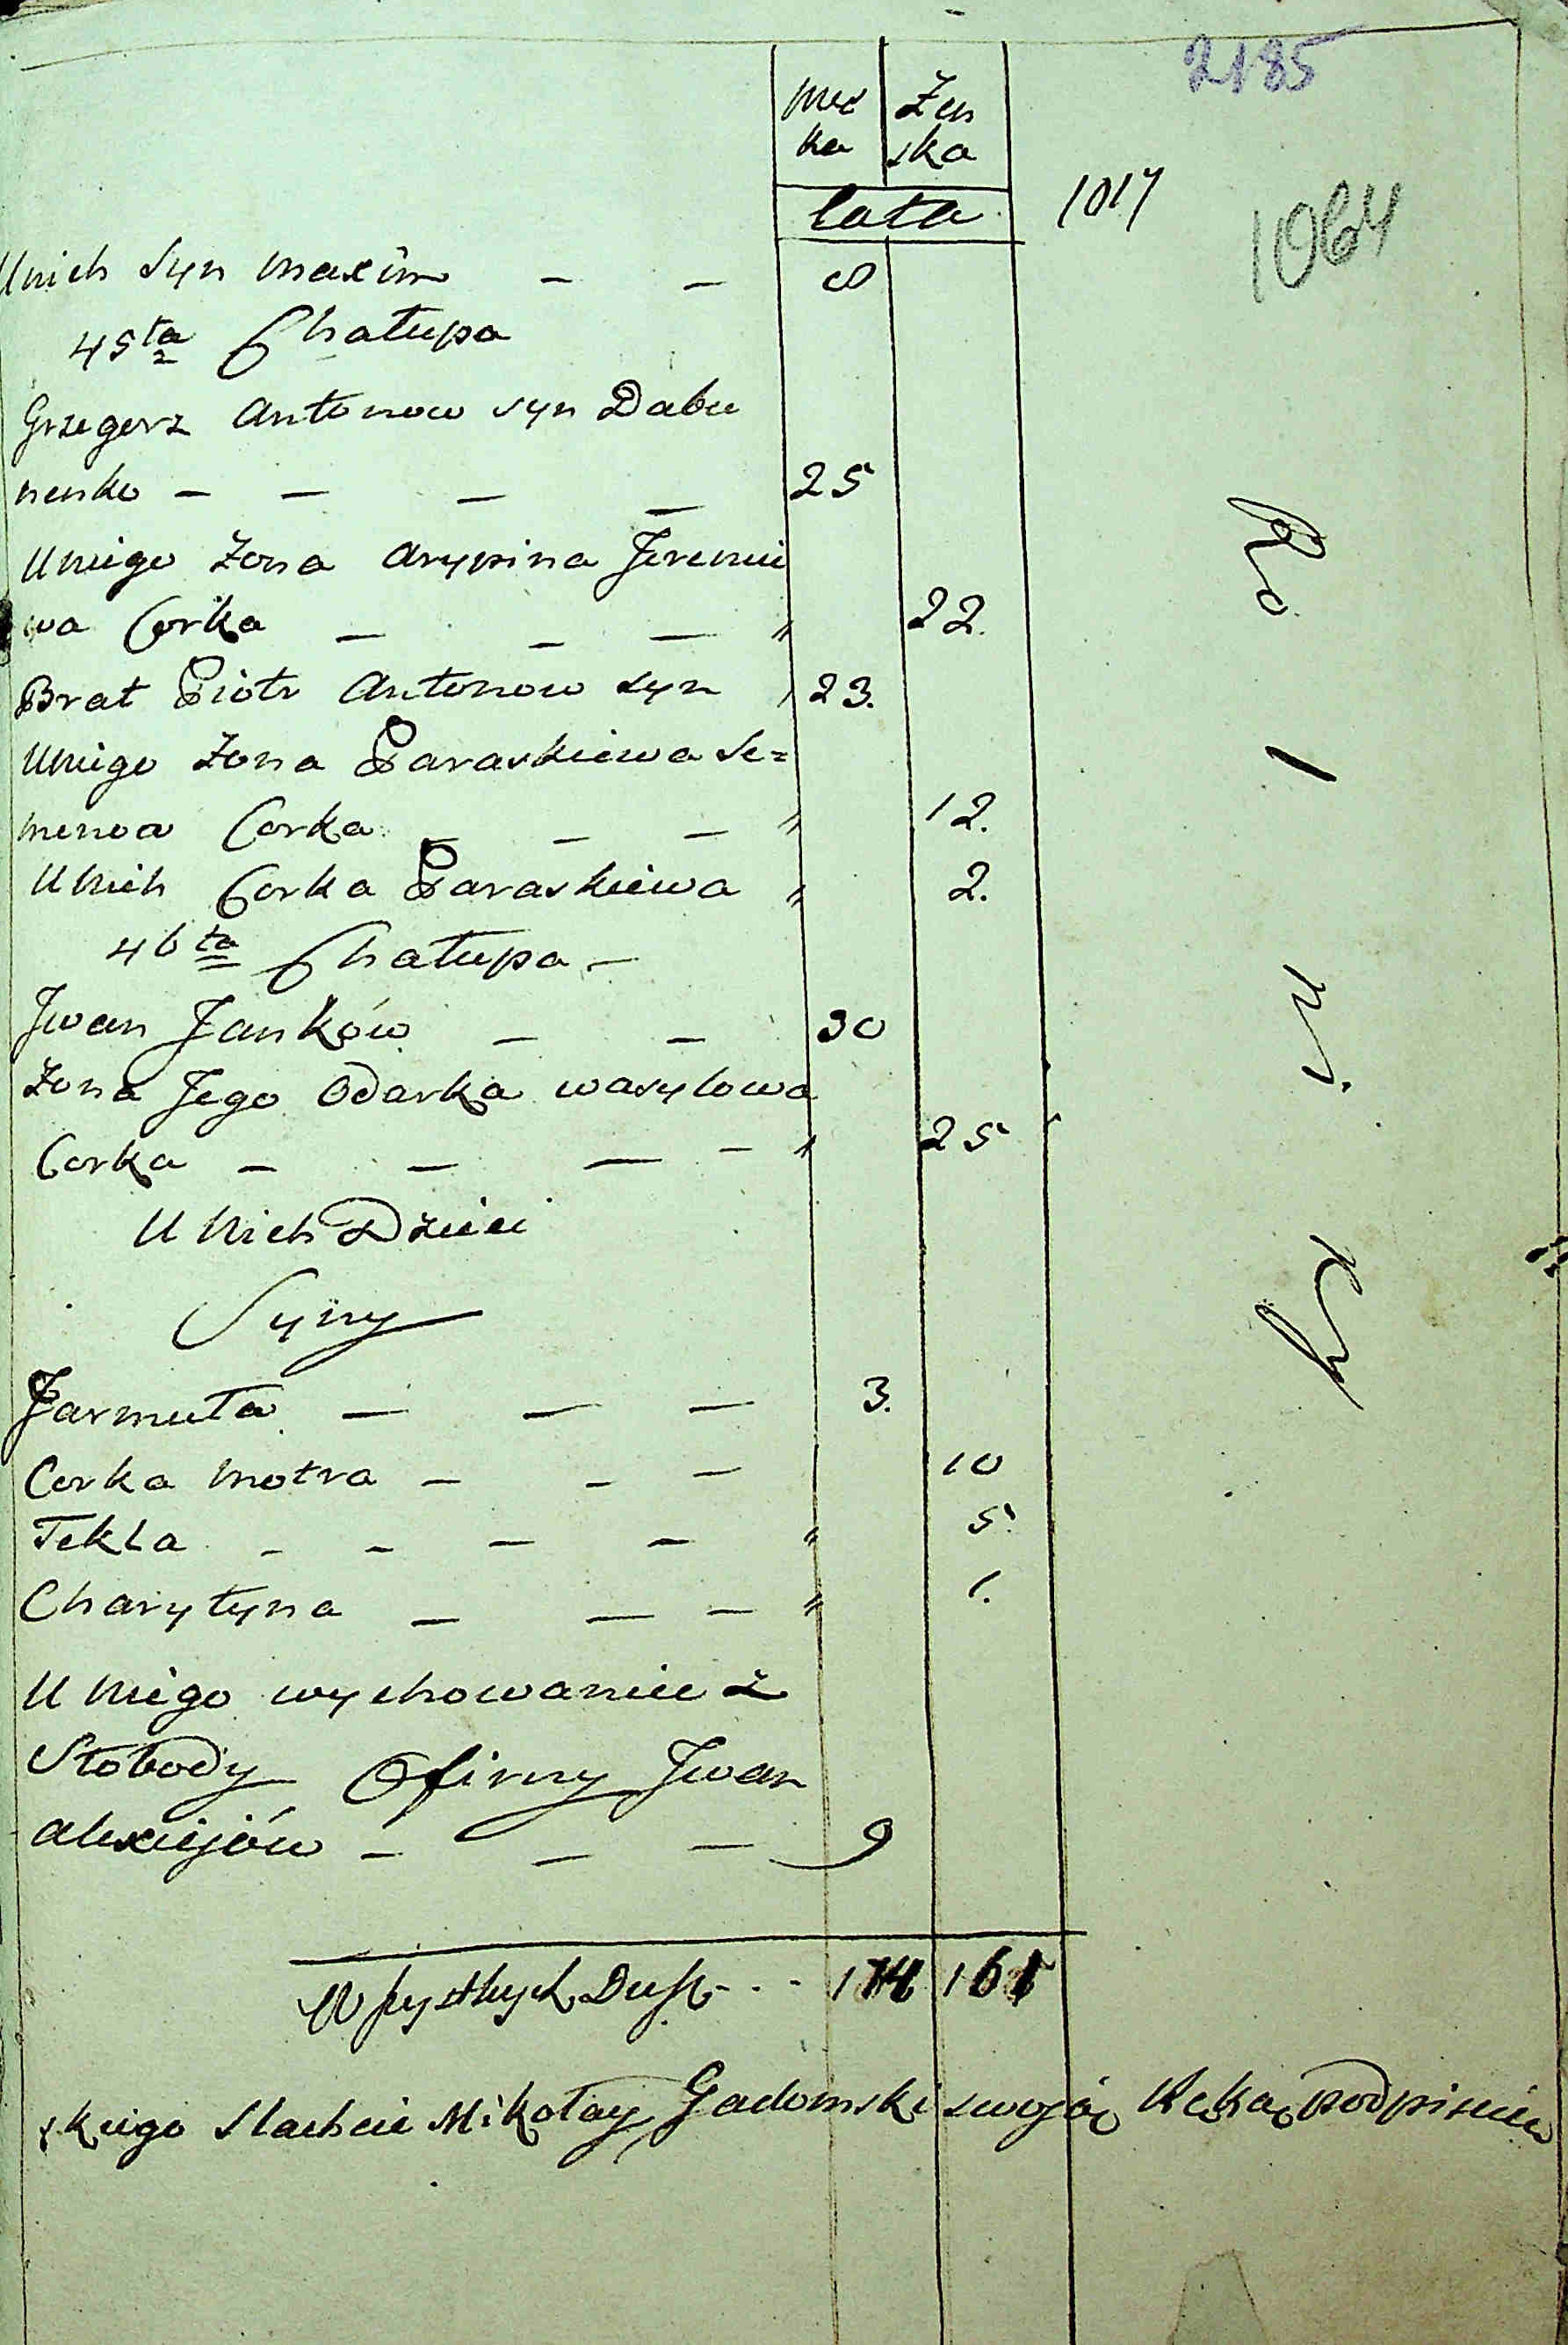 2185
męz Żen
ka ska
lata
1017
1064
Unich Syn Maxim — — 8
45ta Chałupa
Grzegorz Antonow syn Dabu
nenko — — — — 25
Uniego Żona Arypina Jeremie
wa Corka — — — " 22.
Brat Piotr Antonow syn 23.
Uniego Żona Paraskiewa Se=
menowa Corka — — — " 12.
U Nich Corka Paraskiewa " 2.
46ta Chałupa —
Jwan Janków — — 30
Żona Jego Odarka wasylowa
Corka — — — — " 25
U Nich Dzieci
Syny
Jarmuła — — — 3.
Corka Motra — — — 10
Tekla — — — — " 5.
Charytyna — — — " 1.
U Niego wychowaniec z
Słobody Ofirny Jwan
Alexiejów — — — 9
Wszystkich Dusz - . - 174 161
skiego Slachcic Mikołay Gadomski swoją Ręką podpisuię